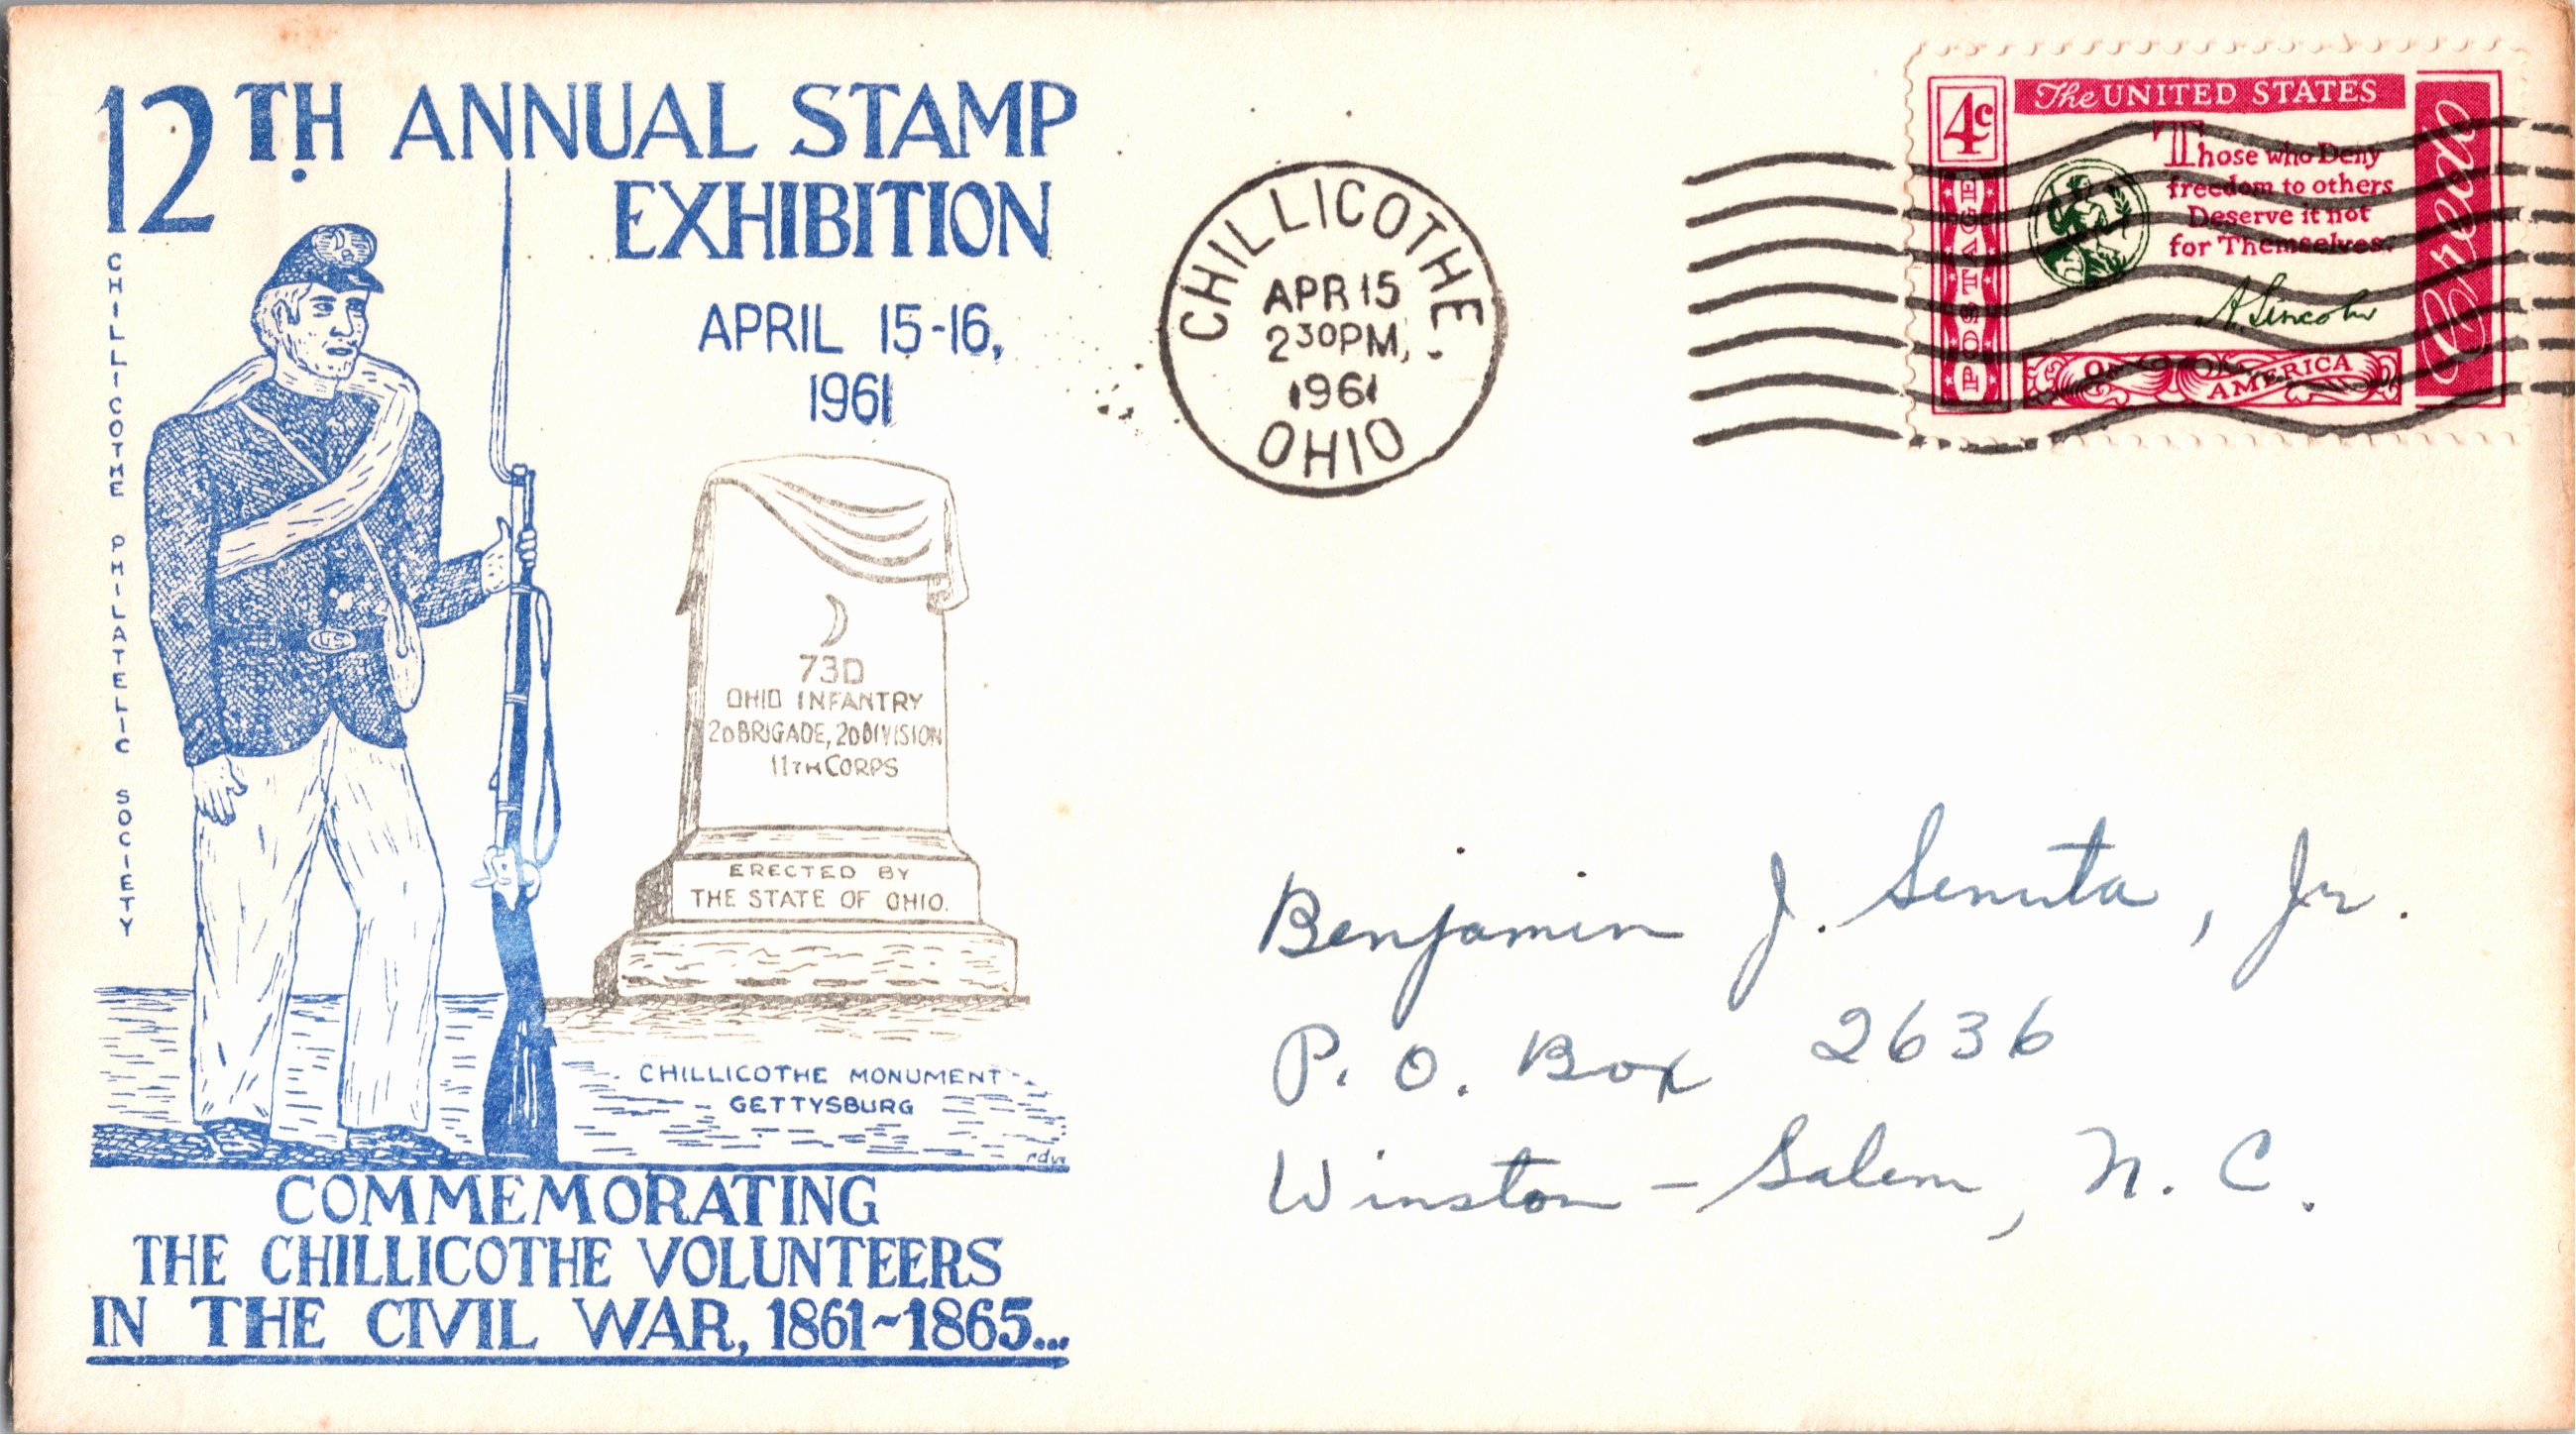 12TH ANNUAL STAMP
EXHIBITION
APRIL 15-16,
1961
CHILLICOTHE PHILATELIC SOCIETY
US
73D
OHIO INFANTRY
2D BRIGADE, 2D DIVISION
11TH CORPS
ERECTED BY
THE STATE OF OHIO.
CHILLICOTHE MONUMENT
GETTYSBURG
COMMEMORATING
THE CHILLICOTHE VOLUNTEERS
IN THE CIVIL WAR, 1861~1865...
CHILLICOTHE
APR 15
2 30 PM
1961
OHIO
4c
POSTAGE
The UNITED STATES
Those who Deny
freedom to others
Deserve it not
for Themselves.
A. Lincoln
OF
AMERICA
Credo
Benjamin J. Senuta, Jr.
P. O. Box 2636
Winston-Salem, N. C.